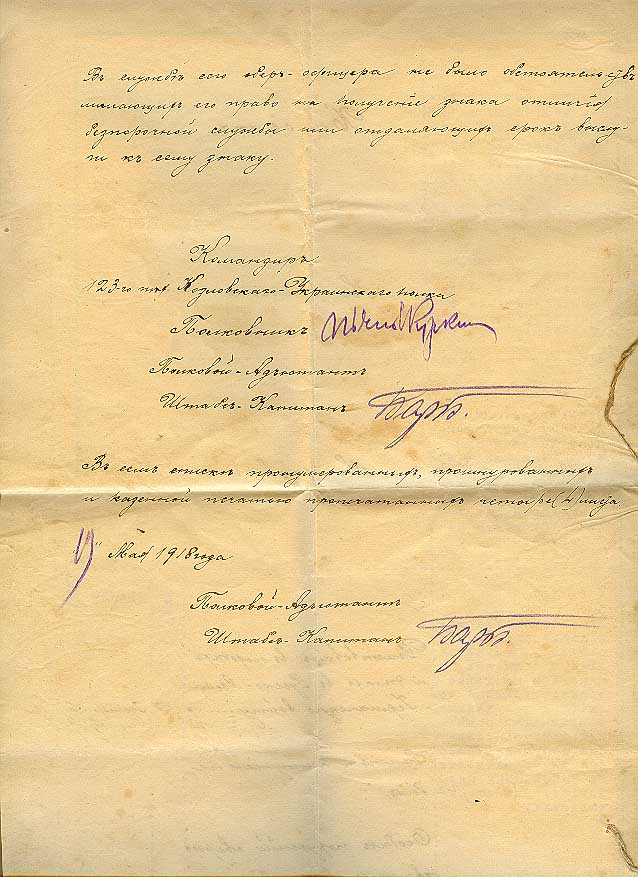 Въ службѣ сего оберъ-офицера не было обстоятельствъ
лишающихъ его права на полученіе знака отличія
безпорочной службы или отдаляющихъ срокъ выслу-
ги къ сему знаку.
Командиръ
123-го пѣх. Козловскаго-Украинскаго полка
Полковникъ
Полковой-Адъютантъ
Штабсъ-Капитанъ
Въ семъ спискѣ пронумерованныхъ, прошнурованныхъ
и казенной печатью пропечатанныхъ четыре (4) листа.
"19" Мая 1918 года
Полковой-Адъютантъ
Штабсъ-Капитанъ